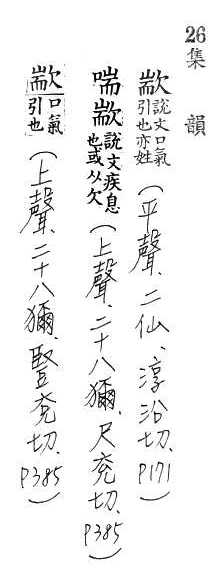 26集韻
歂說文口氣引也亦姓（平聲、二仙、淳沿切、P171）
喘歂說文疾息也或从欠（上聲、二十八獮、尺兗切、P385）
歂口氣引也（上聲、二十八獮、豎兗切、P385）